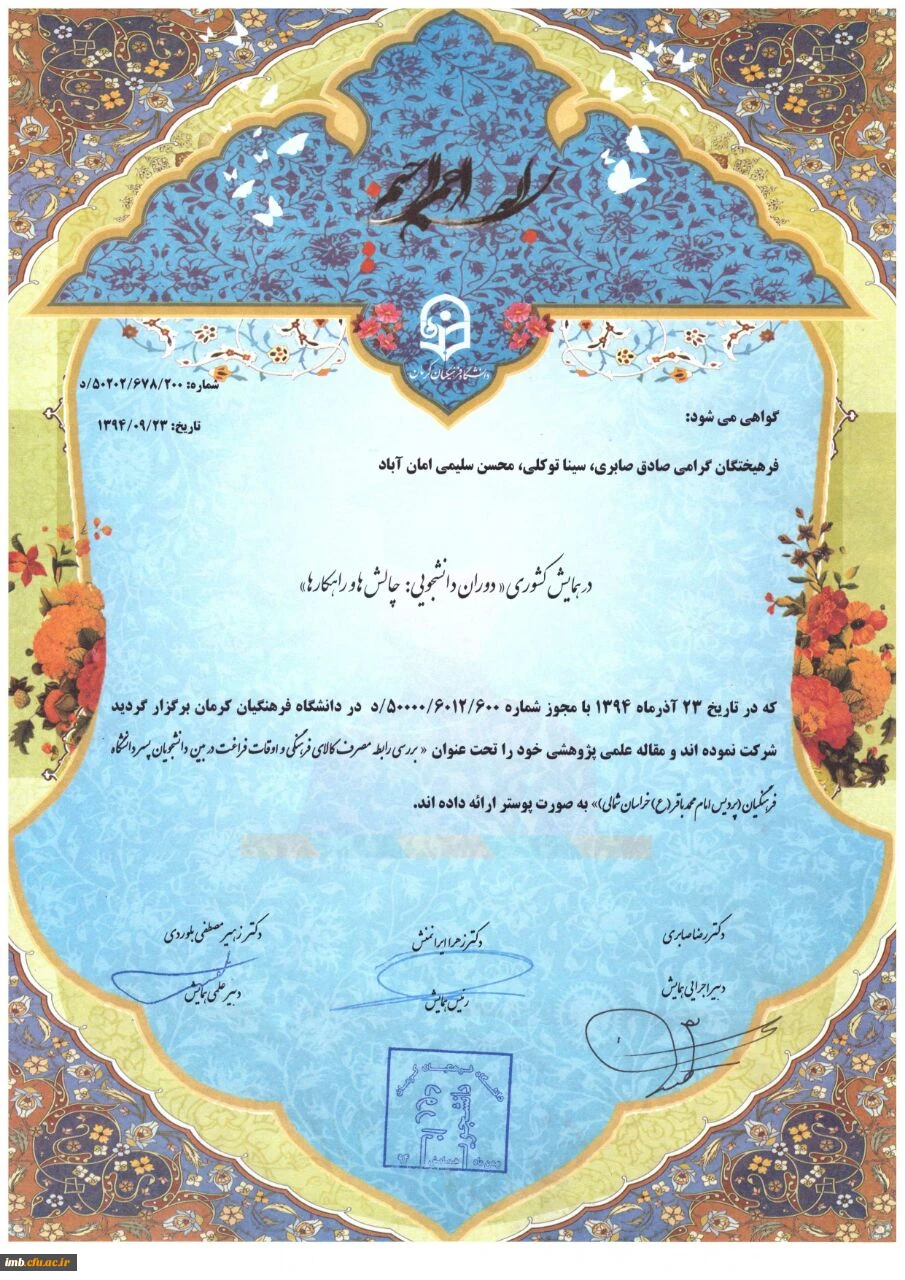 بسم الله الرحمن الرحیم
دانشگاه فرهنگیان کرمان
شماره: ۵۰۲۰۲/۶۷۸/۲۰۰/د
تاریخ: ۱۳۹۴/۰۹/۲۳
گواهی می شود:
فرهیختگان گرامی صادق صابری، سینا توکلی، محسن سلیمی امان آباد
در همایش کشوری « دوران دانشجویی: چالش ها و راهکارها»
که در تاریخ ۲۳ آذرماه ۱۳۹۴ با مجوز شماره ۵۰۰۰۰/۶۰۱۲/۶۰۰/د در دانشگاه فرهنگیان کرمان برگزار گردید
شرکت نموده اند و مقاله علمی پژوهشی خود را تحت عنوان « بررسی رابطه مصرف کالای فرهنگی و اوقات فراغت در بین دانشجویان پسر دانشگاه
فرهنگیان (پردیس امام محمد باقر (ع) خراسان شمالی)» به صورت پوستر ارائه داده اند.
دکتر رضا صابری
دبیر اجرایی همایش
دکتر زهرا ایرانمنش
رئیس همایش
دکتر زهیر مصطفی بلوردی
دبیر علمی همایش
دانشگاه فرهنگیان کرمان
دوران
دانشجویی
همایش
۹۴
imb.cfu.ac.ir